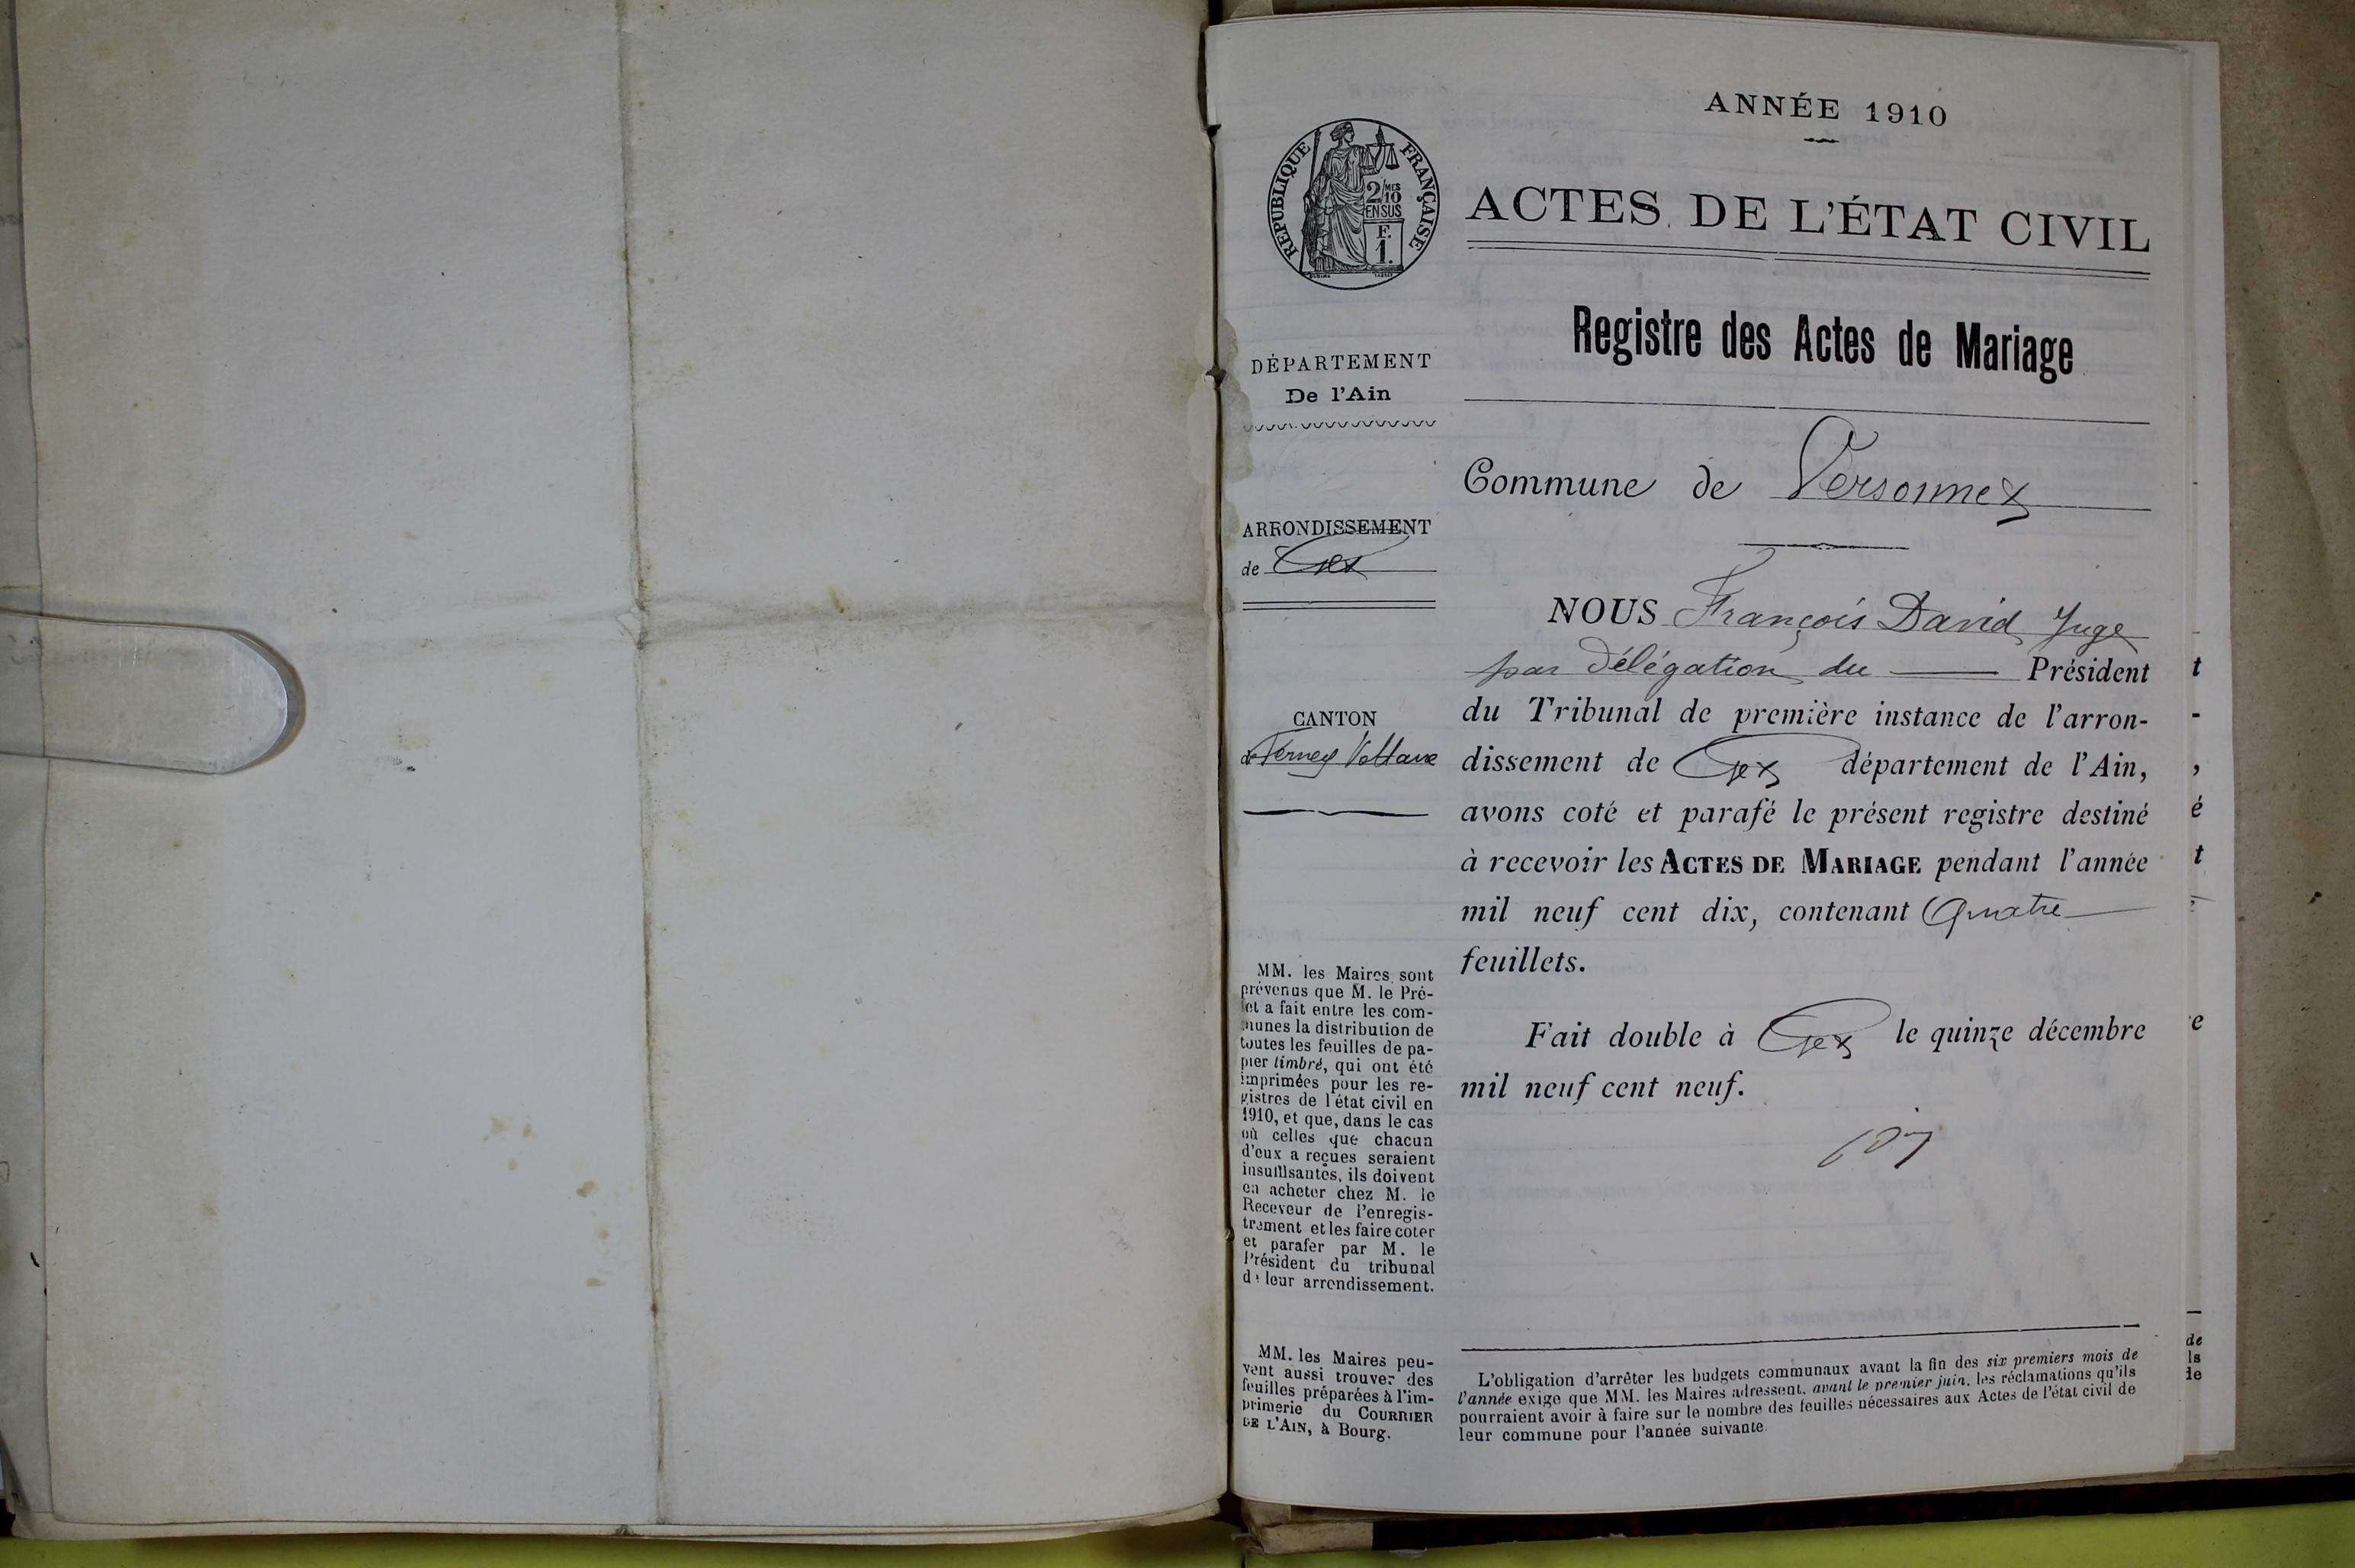 ANNÉE 1910
RÉPUBLIQUE FRANÇAISE
2/MES
10
EN SUS
F.
1.
ACTES DE L'ÉTAT CIVIL
Registre des Actes de Mariage
DÉPARTEMENT
De l'Ain
Commune de Versonnex
ARRONDISSEMENT
de Gex
NOUS François David Juge
par délégation du Président
du Tribunal de première instance de l'arron-
dissement de Gex département de l'Ain,
avons coté et parafé le présent registre destiné
à recevoir les ACTES DE MARIAGE pendant l'année
mil neuf cent dix, contenant Quatre
feuillets.
Fait double à Gex le quinze décembre
mil neuf cent neuf.
CANTON
de Ferney Voltaire
MM. les Maires sont
prévenus que M. le Pré-
fet a fait entre les com-
munes la distribution de
toutes les feuilles de pa-
pier timbré, qui ont été
imprimées pour les re-
gistres de l'état civil en
1910, et que, dans le cas
où celles que chacun
d'eux a reçues seraient
insuffisantes, ils doivent
en acheter chez M. le
Receveur de l'enregis-
trement et les faire coter
et parafer par M. le
Président du tribunal
de leur arrondissement.
MM. les Maires peu-
vent aussi trouver des
feuilles préparées à l'im-
primerie du COURRIER
DE L'AIN, à Bourg.
L'obligation d'arrêter les budgets communaux avant la fin des six premiers mois de
l'année exige que MM. les Maires adressent, avant le premier juin, les réclamations qu'ils
pourraient avoir à faire sur le nombre des feuilles nécessaires aux Actes de l'état civil de
leur commune pour l'année suivante.